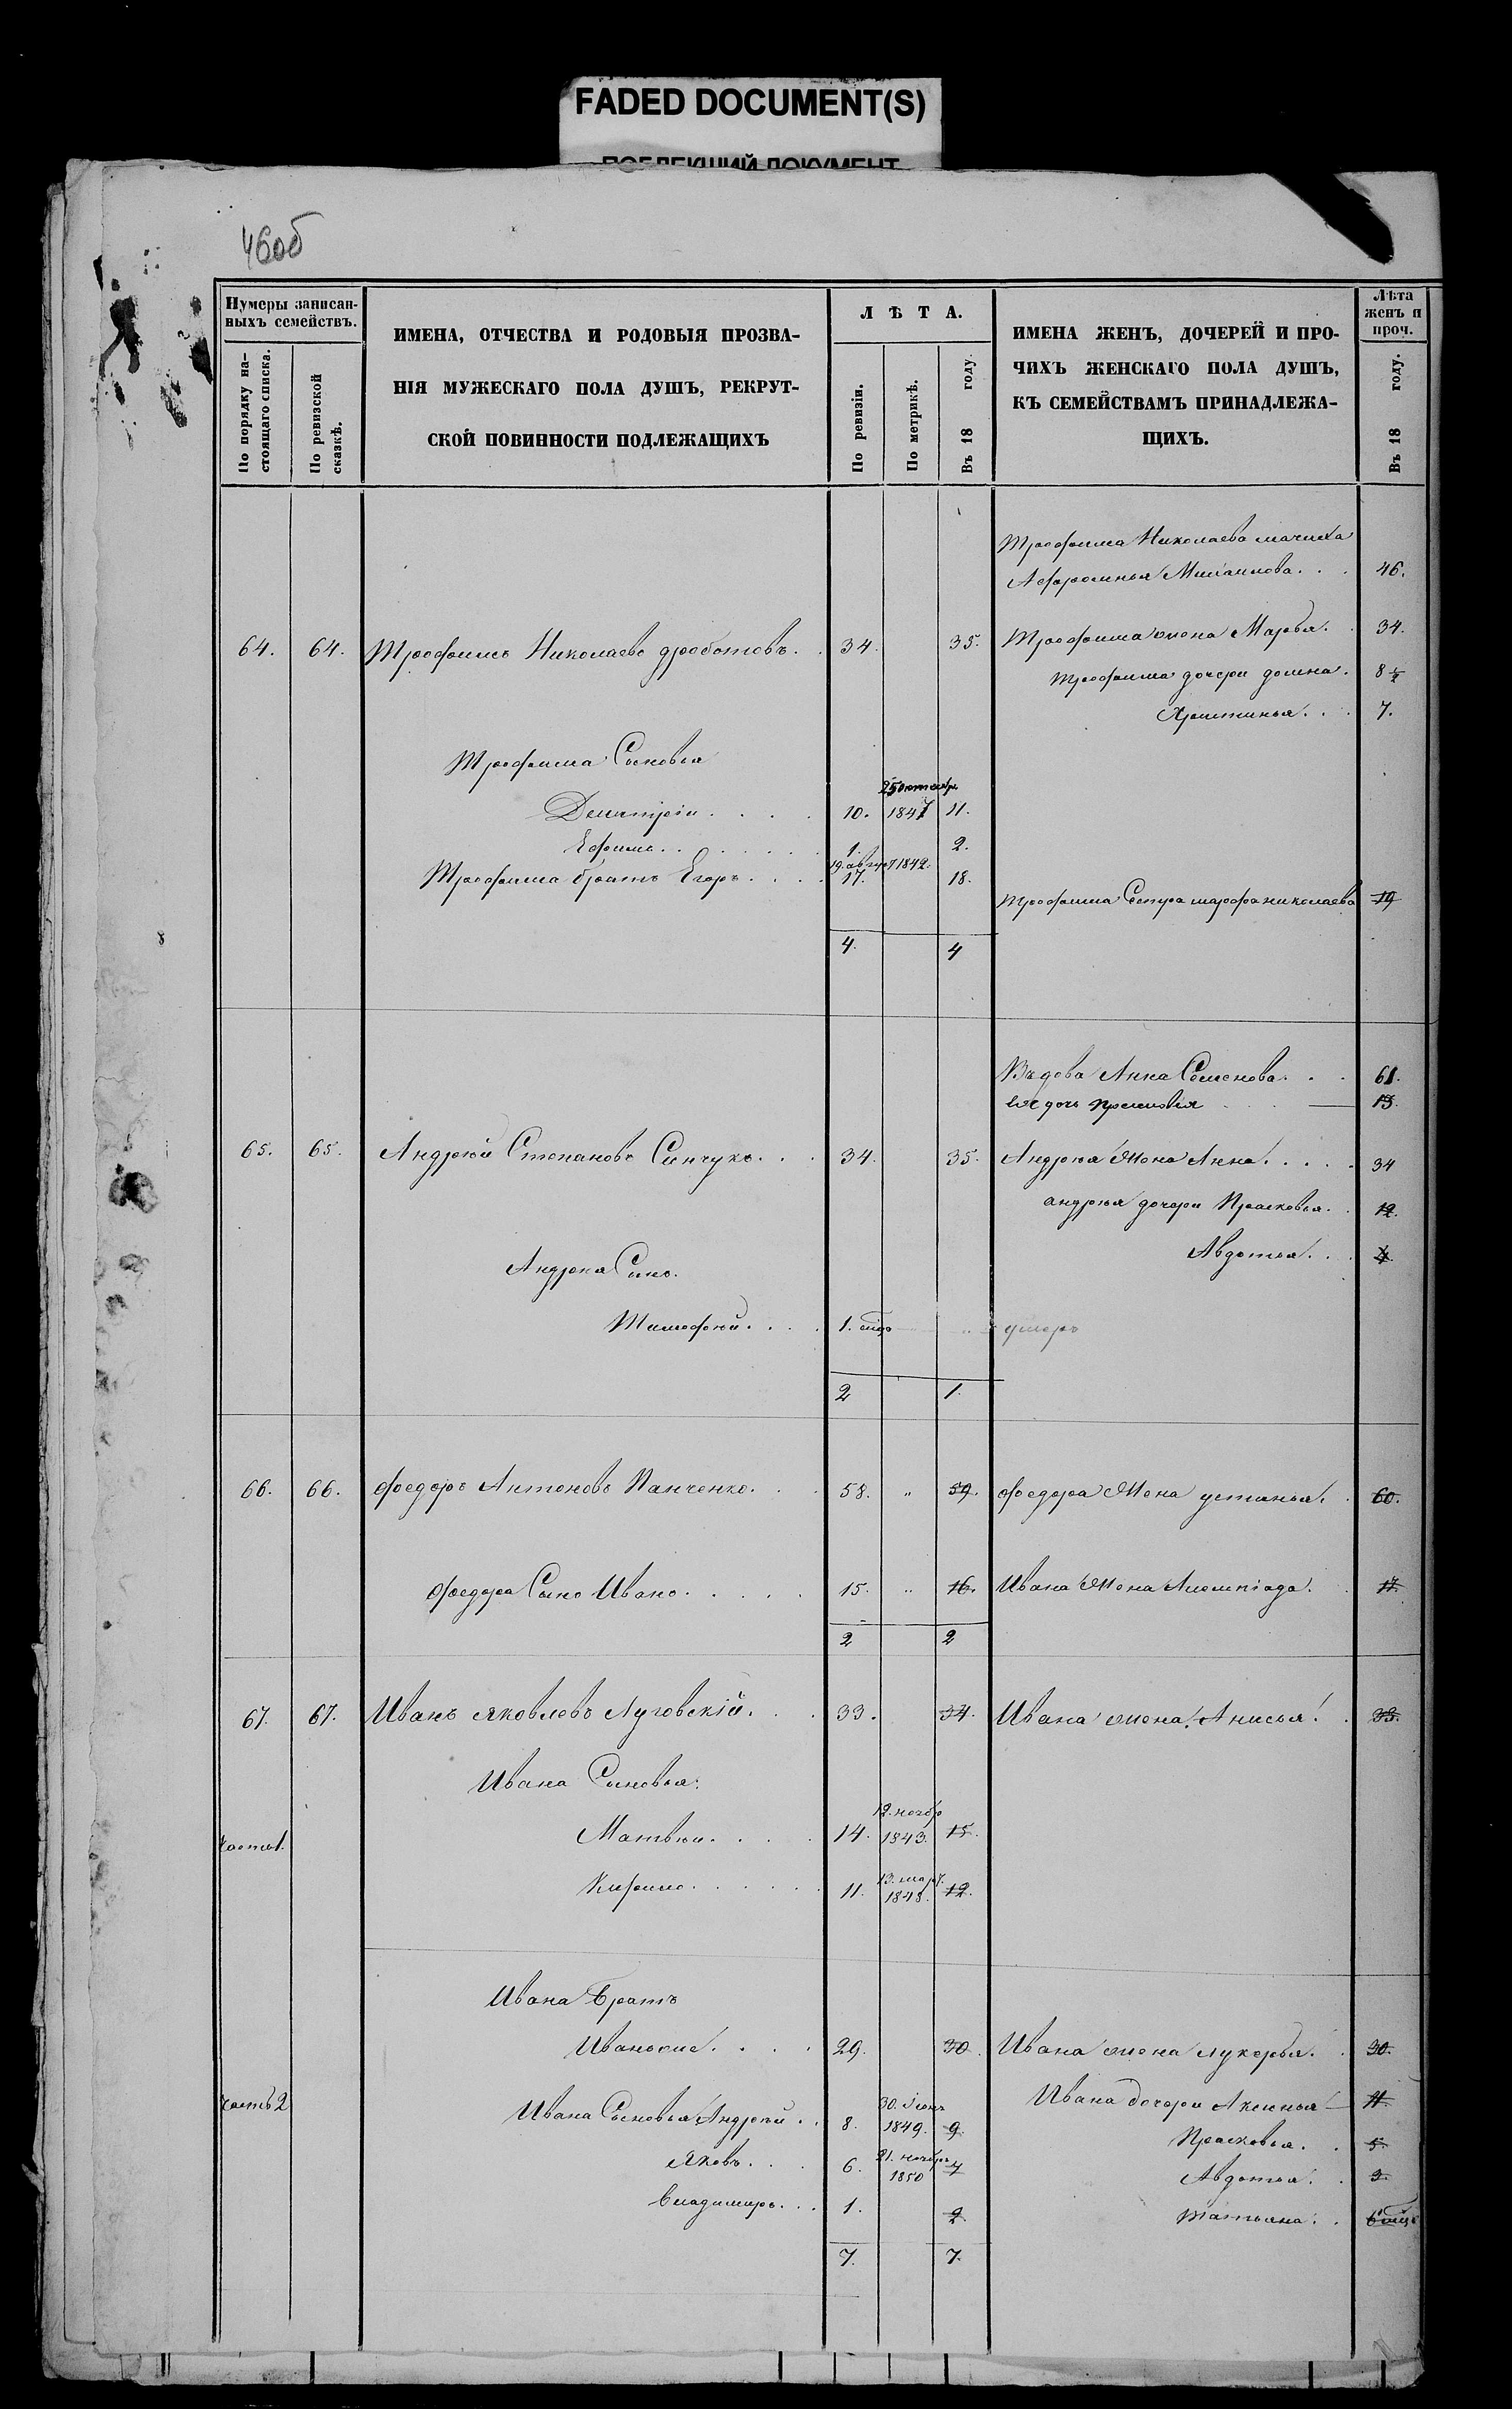 FADED DOCUMENT(S)
46об
Нумеры записан-
ныхъ семействъ.
По порядку на-
стоящаго списка.
По ревизской
сказкѣ.
ИМЕНА, ОТЧЕСТВА И РОДОВЫЯ ПРОЗВА-
НІЯ МУЖЕСКАГО ПОЛА ДУШЪ, РЕКРУТ-
СКОЙ ПОВИННОСТИ ПОДЛЕЖАЩИХЪ
ЛѢТА.
По ревизіи.
По метрикѣ.
Въ 18 году.
ИМЕНА ЖЕНЪ, ДОЧЕРЕЙ И ПРО-
ЧИХЪ ЖЕНСКАГО ПОЛА ДУШЪ,
КЪ СЕМЕЙСТВАМЪ ПРИНАДЛЕЖА-
ЩИХЪ.
Лѣта
женъ и
проч.
Въ 18 году.
Трофима Николаева мачиха
Афросинья . . . 46.
64. 64. Трофимъ Николаевъ дроботовъ. . 34. 35. Трофима жена Марья. . 34.
Трофима дочери домна. 8½
Христинья. . . 7.
Трофима Сыновья
25 октября
Дмитрій . . . . 10. 1847 11.
Ефимъ. . . . . . . 1. 2.
19. август 1842.
Трофима братъ Егоръ. . . . 17. 18.
Трофима Сестра марфа николаева 19
4. 4
Вдова Анна Семенова. . . 61.
ея дочь 13.
65. 65. Андрѣй Степановъ Синчукъ. . . 34. 35. Андрѣя Жена Анна. . . . . 34
андрѣя дочери Прасковья. . 12.
Авдотья. . . 4.
Андрѣя Сынъ.
Тимофѣй. . . . 1. умеръ
2 1.
66. 66. Федоръ Антоновъ Панченко. . . 58. " 59. Федора Жена устинья. . 60.
Федора Сынъ Иванъ. . . . . 15. " 16. Ивана Жена . 17.
2 2
67. 67. Иванъ Яковлевъ Луговскій. . . 33. 34. Ивана жена Анисья. . 33.
Ивана Сыновья.
12. ноябр
часть 1. Матвѣй. . . . 14. 1843. 15.
13. март.
. . . . . . 11. 1848. 12.
Ивана Братъ
Иванъ . . . . 29. 30. Ивана жена лукерья. . 30.
30. Іюнь
часть 2 Ивана Сыновья Андрѣй. . 8. 1849. 9. Ивана дочери Аксинья 11.
Прасковья. . 5.
21. ноября
Яковъ. . . 6. 1850 7 Авдотья. . 3.
Владимиръ. . . 1. 2. татьяна. .
7. 7.